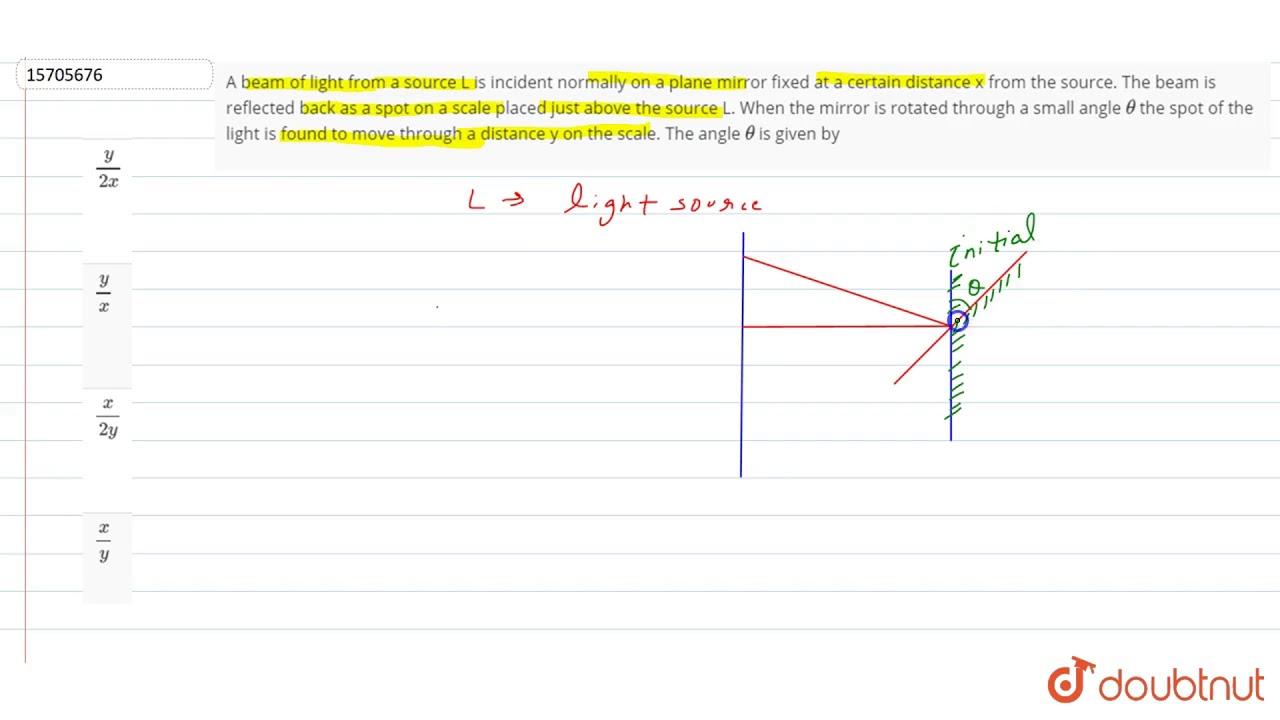 15705676
A beam of light from a source L is incident normally on a plane mirror fixed at a certain distance x from the source. The beam is
reflected back as a spot on a scale placed just above the source L. When the mirror is rotated through a small angle θ the spot of the
light is found to move through a distance y on the scale. The angle θ is given by
y/2x
y/x
x/2y
x/y
L → light source
Initial
θ
doubtnut